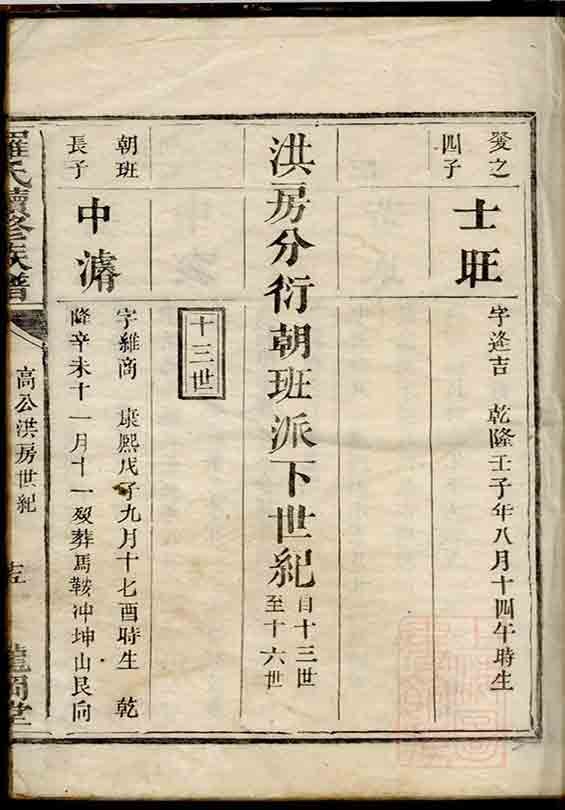 發之
四子
士旺
字逢吉 乾隆壬子年八月十四午時生
洪房分衍朝班派下世紀
自十三世
至十六世
十三世
朝班
長子
中濤
字維商 康熙戊子九月十七酉時生 乾
隆辛未十一月十一歿葬馬鞍冲坤山艮向
羅氏續修族譜
高公洪房世紀